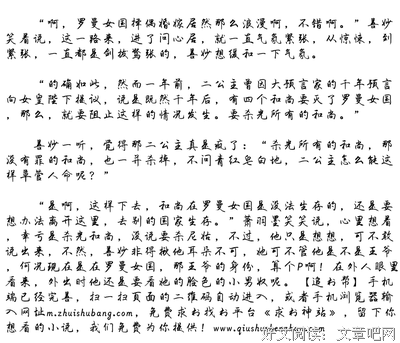 “啊，罗曼女国择偶婚嫁居然那么浪漫啊，不错啊。”喜妙
笑着说，这一路来，进了问心居，就一直气氛紧张，从惊悚，到
紧张，一直都是剑拔弩张的，喜妙想缓和一下气氛。
“的确如此，然而一年前，二公主曾因大预言家的千年预言
向女皇陛下提议，说是既然千年后，有四个和尚要灭了罗曼女国
，那么，就要阻止这样的情况发生。要杀光所有的和尚。”
喜妙一听，觉得那二公主真是疯了：“杀光所有的和尚，那
没有罪的和尚，也一并杀掉，不问青红皂白地，二公主怎么能这
样草菅人命呢？”
“是啊，这样下去，和尚在罗曼女国是没法生存的，还是要
想办法离开这里，去别的国家生存。”萧羽墨笑笑说，心里想着
，幸亏是杀光和尚，没说要杀尼姑，不过，他只是想想，可不敢
说出来，不然，喜妙非得揪他耳朵不可，她可不管他是不是王爷
，何况现在是在罗曼女国，那王爷的身份，算个P啊！在外人眼里
看来，外出时他还是要看她的脸色的小男奴呢。【追书帮】手机
端已经完善，扫一扫页面的二维码自动进入，或者手机浏览器输
入网址m.zhuishubang.com，免费求书找书平台《求书神站》，留下你
想看的小说，我们免费为你提供！www.qiushushenzhan.com
好文阅读：文章吧网